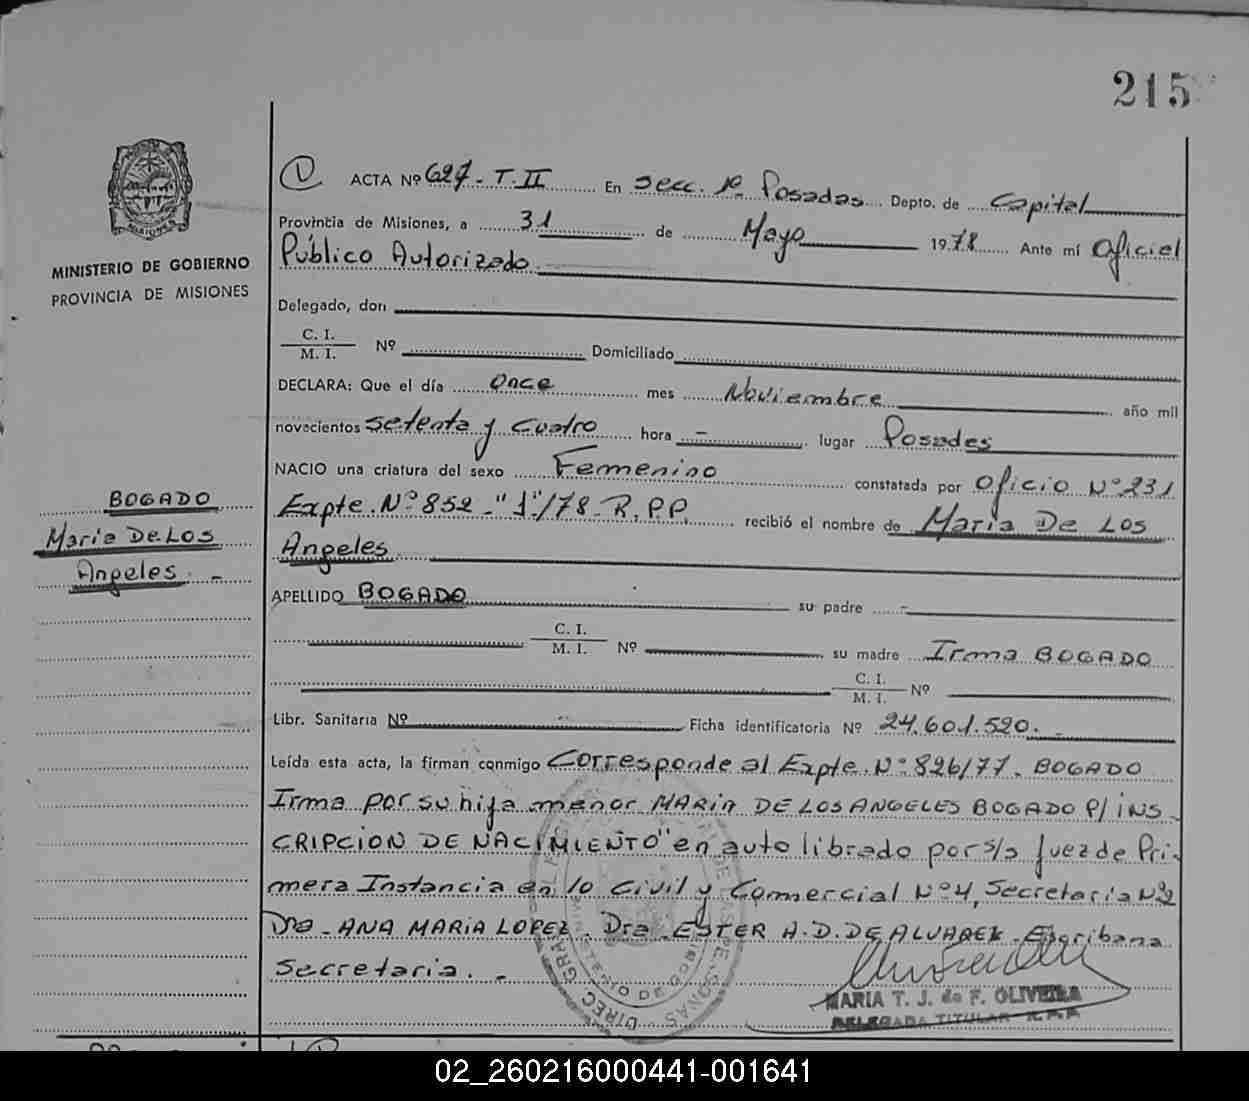 215
MINISTERIO DE GOBIERNO
PROVINCIA DE MISIONES
BOGADO
Maria De Los
Angeles.-
ACTA Nº 627-T.II En Secc. 1º Posadas Depto. de Capital
Provincia de Misiones, a 31 de Mayo 1978 Ante mí Oficiel
Público Autorizado
Delegado, don
C. I.
M. I. Nº Domiciliado
DECLARA: Que el día Once mes Noviembre año mil
novecientos setenta y cuatro hora - lugar Posades
NACIO una criatura del sexo Femenino constatada por Oficio Nº 231
Expte. Nº 852-"1"/78-R.P.P. recibió el nombre de Maria De Los
Angeles
APELLIDO BOGADO su padre -
C. I.
M. I. Nº su madre Irma BOGADO
C. I.
M. I. Nº
Libr. Sanitaria Nº Ficha identificatoria Nº 24.601.520.-
Leída esta acta, la firman conmigo Corresponde al Expte. Nº 826/77. BOGADO
Irma por su hija menor MARIA DE LOS ANGELES BOGADO P/ INS
CRIPCION DE NACIMIENTO" en auto librado por s/s Juez de Pri-
mera Instancia en lo Civil y Comercial Nº 4, Secretaria Nº 2
Dra. ANA MARIA LOPEZ. Dra. ESTER A.D. DE ALVAREZ Escribana
Secretaria.-
MARIA T. J. de F. OLIVEIRA
DELEGADA TITULAR R.P.P
02_260216000441-001641